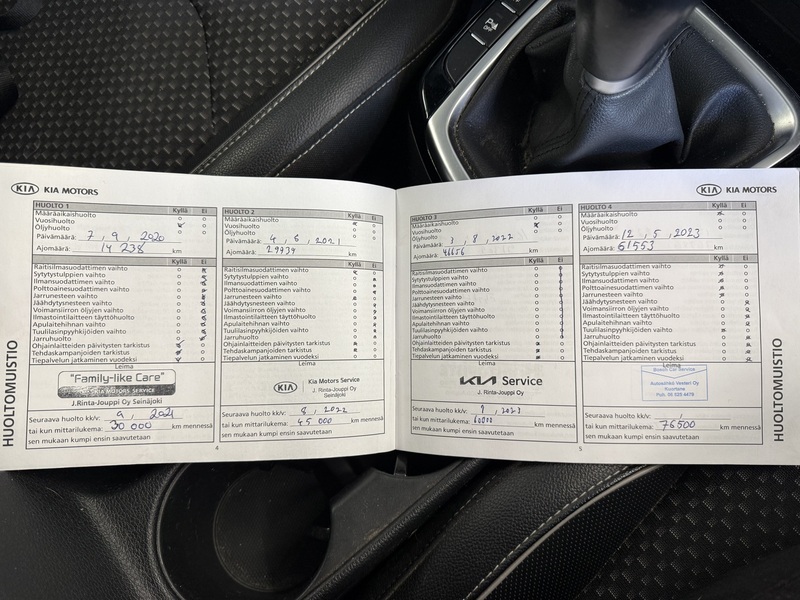 P
OFF
KIA KIA MOTORS
HUOLTO 1 Kyllä Ei
Määräaikaishuolto
Vuosihuolto
Öljyhuolto
Päivämäärä: 7, 9, 2020
Ajomäärä: 14 238 km
Kyllä Ei
Raitisilmasuodattimen vaihto
Sytytystulppien vaihto
Ilmansuodattimen vaihto
Polttoainesuodattimen vaihto
Jarrunesteen vaihto
Jäähdytysnesteen vaihto
Voimansiirron öljyjen vaihto
Ilmastointilaitteen täyttöhuolto
Apulaitehihnan vaihto
Tuulilasinpyyhkijöiden vaihto
Jarruhuolto
Ohjainlaitteiden päivitysten tarkistus
Tehdaskampanjoiden tarkistus
Tiepalvelun jatkaminen vuodeksi
Leima
"Family-like Care"
KIA MOTORS SERVICE
J.Rinta-Jouppi Oy Seinäjoki
Seuraava huolto kk/v: 9, 2021
tai kun mittarilukema: 30 000 km mennessä
sen mukaan kumpi ensin saavutetaan
HUOLTOMUISTIO
HUOLTO 2 Kyllä Ei
Määräaikaishuolto
Vuosihuolto
Öljyhuolto
Päivämäärä: 4, 6, 2021
Ajomäärä: 29934 km
Kyllä Ei
Raitisilmasuodattimen vaihto
Sytytystulppien vaihto
Ilmansuodattimen vaihto
Polttoainesuodattimen vaihto
Jarrunesteen vaihto
Jäähdytysnesteen vaihto
Voimansiirron öljyjen vaihto
Ilmastointilaitteen täyttöhuolto
Apulaitehihnan vaihto
Tuulilasinpyyhkijöiden vaihto
Jarruhuolto
Ohjainlaitteiden päivitysten tarkistus
Tehdaskampanjoiden tarkistus
Tiepalvelun jatkaminen vuodeksi
Leima
KIA Kia Motors Service
J. Rinta-Jouppi Oy
Seinäjoki
Seuraava huolto kk/v: 8, 2022
tai kun mittarilukema: 45 000 km mennessä
sen mukaan kumpi ensin saavutetaan
4
HUOLTO 3 Kyllä Ei
Määräaikaishuolto
Vuosihuolto
Öljyhuolto
Päivämäärä: 3, 8, 2022
Ajomäärä: km
Kyllä Ei
Raitisilmasuodattimen vaihto
Sytytystulppien vaihto
Ilmansuodattimen vaihto
Polttoainesuodattimen vaihto
Jarrunesteen vaihto
Jäähdytysnesteen vaihto
Voimansiirron öljyjen vaihto
Ilmastointilaitteen täyttöhuolto
Apulaitehihnan vaihto
Tuulilasinpyyhkijöiden vaihto
Jarruhuolto
Ohjainlaitteiden päivitysten tarkistus
Tehdaskampanjoiden tarkistus
Tiepalvelun jatkaminen vuodeksi
Leima
KIA Service
J. Rinta-Jouppi Oy
Seuraava huolto kk/v: 2023
tai kun mittarilukema: 60000 km mennessä
sen mukaan kumpi ensin saavutetaan
5
KIA KIA MOTORS
HUOLTO 4 Kyllä Ei
Määräaikaishuolto
Vuosihuolto
Öljyhuolto
Päivämäärä: 12, 5, 2023
Ajomäärä: 61553 km
Kyllä Ei
Raitisilmasuodattimen vaihto
Sytytystulppien vaihto
Ilmansuodattimen vaihto
Polttoainesuodattimen vaihto
Jarrunesteen vaihto
Jäähdytysnesteen vaihto
Voimansiirron öljyjen vaihto
Ilmastointilaitteen täyttöhuolto
Apulaitehihnan vaihto
Tuulilasinpyyhkijöiden vaihto
Jarruhuolto
Ohjainlaitteiden päivitysten tarkistus
Tehdaskampanjoiden tarkistus
Tiepalvelun jatkaminen vuodeksi
Leima
Bosch Car Service
Oy
Kuortane
Puh. 06 525 4476
Seuraava huolto kk/v: ,
tai kun mittarilukema: 76500 km mennessä
sen mukaan kumpi ensin saavutetaan
HUOLTOMUISTIO